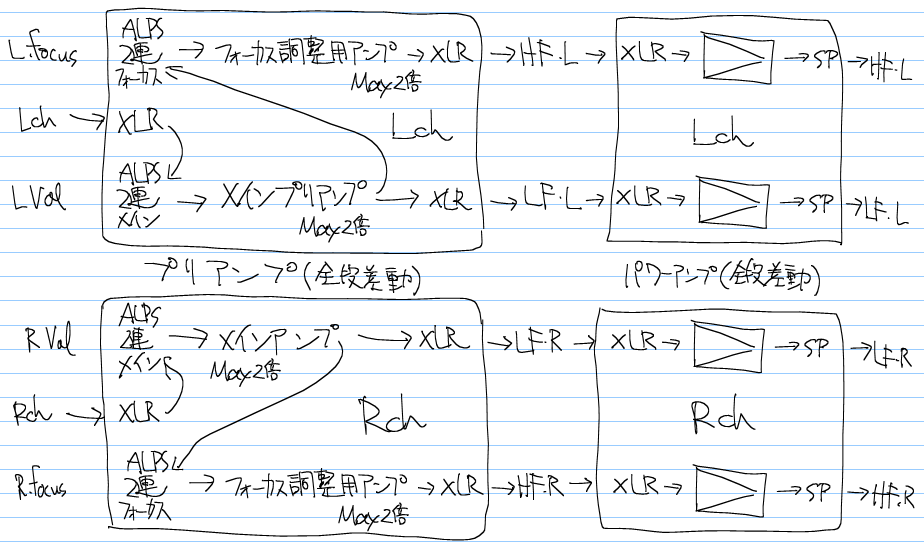 L.focus ALPS 2連 フォーカス → フォーカス調整用アンプ Max2倍 → XLR → HF.L → XLR → → SP → HF.L
Lch → XLR Lch Lch
L Vol ALPS 2連 メイン → メインプリアンプ Max2倍 → XLR → LF.L → XLR → → SP → LF.L
プリアンプ(全段差動) パワーアンプ(全段差動)
R Vol ALPS 2連 メイン → メインアンプ Max2倍 → XLR → LF.R → XLR → → SP → LF.R
Rch → XLR Rch Rch
R.focus ALPS 2連 フォーカス → フォーカス調整用アンプ Max2倍 → XLR → HF.R → XLR → → SP → HF.R